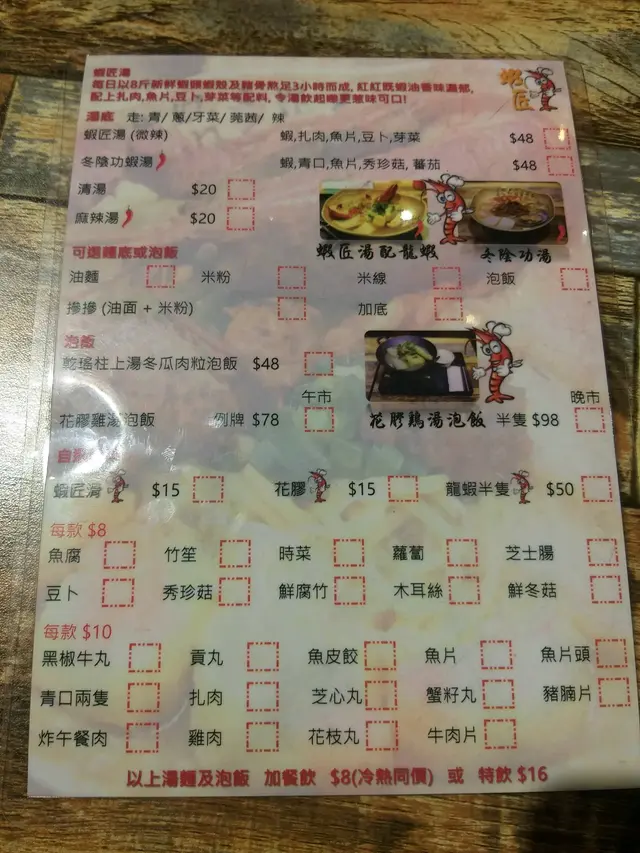 蝦匠湯
蝦匠
每日以8斤新鮮蝦頭蝦殼及豬骨熬足3小時而成, 紅紅既蝦油香味濃郁,
配上扎肉,魚片,豆卜,芽菜等配料, 令湯飲起嚟更惹味可口!
湯底 走: 青/ 蔥/牙菜/ 莞茜/ 辣
蝦匠湯 (微辣) 蝦,扎肉,魚片,豆卜,芽菜 $48
冬陰功蝦湯 蝦,青口,魚片,秀珍菇, 蕃茄 $48
清湯 $20
麻辣湯 $20
蝦匠湯配龍蝦 冬陰功湯
可選麵底或泡飯
油麵 米粉 米線 泡飯
摻摻 (油面 + 米粉) 加底
泡飯
乾瑤柱上湯冬瓜肉粒泡飯 $48
午市 晚市
花膠雞湯泡飯 例牌 $78 花膠鷄湯泡飯 半隻 $98
蝦匠滑 $15 花膠 $15 龍蝦半隻 $50
每款 $8
魚腐 竹笙 時菜 蘿蔔 芝士腸
豆卜 秀珍菇 鮮腐竹 木耳絲 鮮冬菇
每款 $10
黑椒牛丸 貢丸 魚皮餃 魚片 魚片頭
青口兩隻 扎肉 芝心丸 蟹籽丸 豬腩片
炸午餐肉 雞肉 花枝丸 牛肉片
以上湯麵及泡飯 加餐飲 $8(冷熱同價) 或 特飲 $16